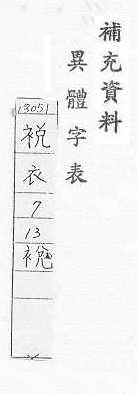 補充資料
異體字表
13051
裞
衣
7
13